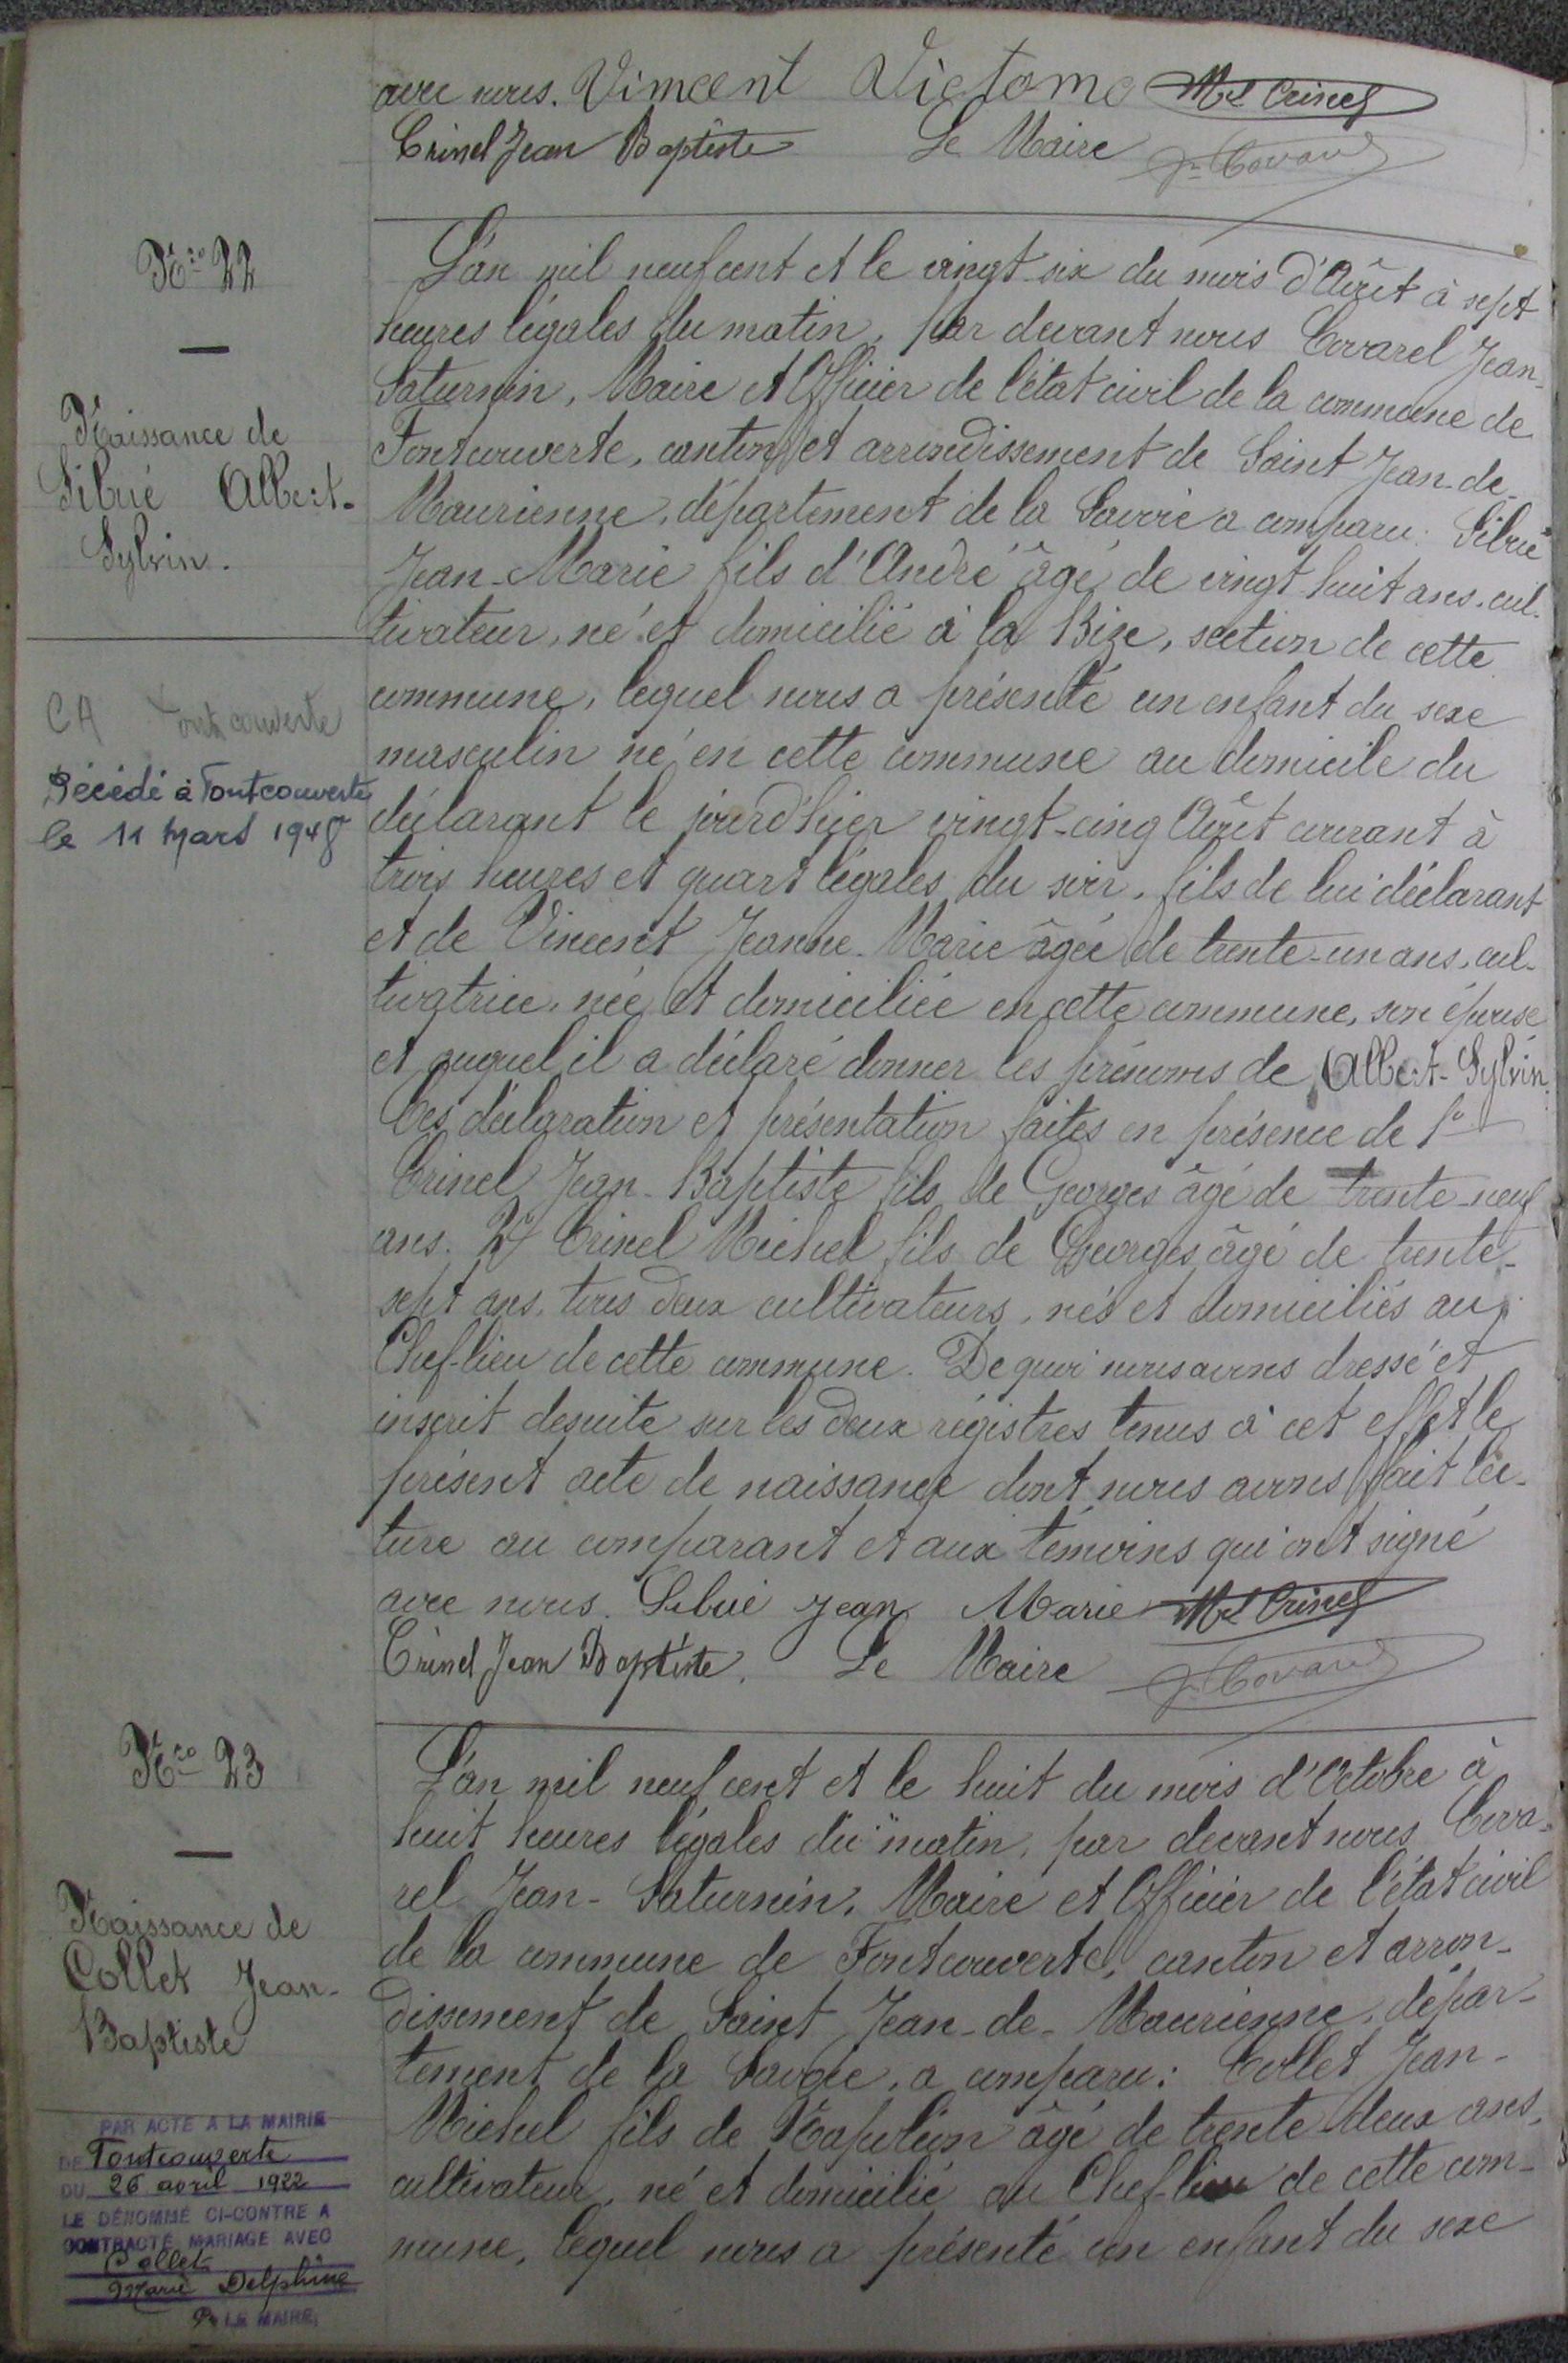 avec nous. Vincent Victome Mel Crinel
Crinel Jean Baptiste Le Maire Jn Covarel
Nro 22
Naissance de
Sibué Albert-
Sylvin.
CA Fontcouverte
Décédé à Fontcouverte
le 11 Mars 1948
L'an mil neuf cent et le vingt-six du mois d'Août à sept
heures légales du matin, par devant nous Covarel Jean-
Saturnin, Maire et Officier de l'état civil de la commune de
Fontcouverte, canton et arrondissement de Saint Jean-de-
Maurienne, département de la Savoie a comparu: Sibué
Jean-Marie fils d'André âgé de vingt huit ans, cul-
tivateur, né et domicilié à la Bise, section de cette
commune, lequel nous a présenté un enfant du sexe
masculin né en cette commune au domicile du
déclarant le jourd'hier vingt-cinq Août courant à
trois heures et quart légales du soir, fils de lui déclarant
et de Vincent Jeanne-Marie âgée de trente-un ans, cul-
tivatrice, née et domiciliée en cette commune, son épouse
et auquel il a déclaré donner les prénoms de Albert-Sylvin.
Ces déclaration et présentation faites en présence de 1º
Crinel Jean-Baptiste fils de Georges âgé de trente-neuf
ans. 2º Crinel Michel fils de Georges âgé de trente-
sept ans, tous deux cultivateurs, nés et domiciliés au
Chef-lieu de cette commune. De quoi nous avons dressé et
inscrit desuite sur les deux régistres tenus à cet effet le
présent acte de naissance dont nous avons fait lec-
ture au comparant et aux témoins qui ont signé
avec nous. Sibué Jean Marie Mel Crinel
Crinel Jean Baptiste. Le Maire Jn Covarel
Nro 23
Naissance de
Collet Jean-
Baptiste
PAR ACTE A LA MAIRIE
DE Fontcouverte
DU 26 avril 1922
LE DÉNOMMÉ CI-CONTRE A
CONTRACTÉ MARIAGE AVEC
Collet
Marie Delphine
Pr LE MAIRE,
L'an mil neuf cent et le huit du mois d'Octobre à
huit heures légales du matin, par devant nous Cova-
rel Jean-Saturnin, Maire et Officier de l'état civil
de la commune de Fontcouverte, canton et arron-
dissement de Saint Jean-de-Maurienne, dépar-
tement de la Savoie, a comparu: Collet Jean-
Michel fils de Napoléon âgé de trente-deux ans,
cultivateur, né et domicilié au Chef-lieu de cette com-
mune, lequel nous a présenté un enfant du sexe